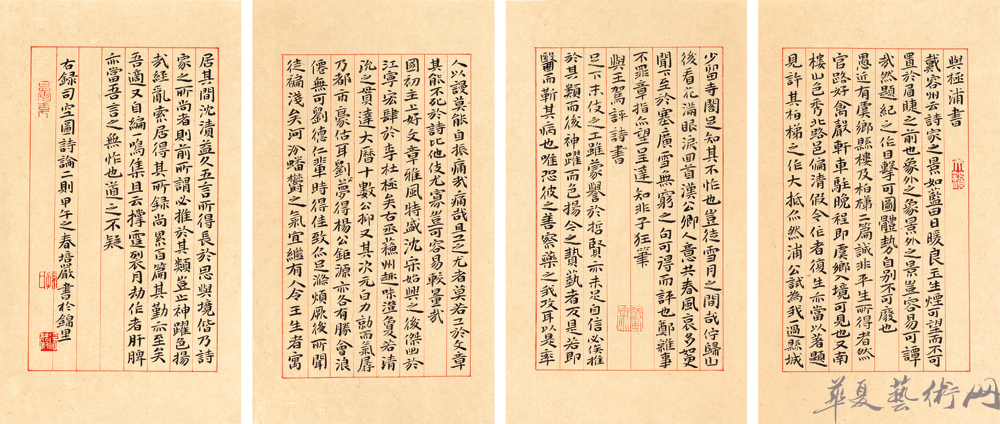 與極浦書
戴容州云詩家之景如藍田日暖良玉生煙可望而不可
置於眉睫之前也象外之象景外之景豈容易可譚
哉然題紀之作目擊可圖體勢自別不可廢也
愚近有虞鄉縣樓及柏梯二篇誠非平生所得者然
官路好禽聲軒車駐晚程即虞鄉入境可見也又南
樓山色秀北路邑偏清假令作者復生亦當以著題
見許其柏梯之作大抵亦然浦公試為我過縣城
少留寺閣足知其不怍也豈徒雪月之間哉佇歸山
後看花滿眼淚回首漢公卿人意共春風哀多如更
聞下至於塞廣雪無窮之句可得而評也鄭雜事
不罪章指亦望呈達知非子狂筆
與王駕評詩書
足下末伎之工雖蒙譽於哲賢亦未足自信必俟推
於其類而後神躍而色揚今之贄藝者反是若即
醫而靳其病也唯恐彼之善察藥之我攻耳以是率
人以謾莫能自振痛哉且工之尤者莫若工於文章
其能不死於詩比他伎尤寡豈可容易較量哉
國初主上好文章雅風特盛沈宋始興之後傑出於
江寧宏肆於李杜極矣右丞蘇州趣味澄夐若清
沇之貫達大曆十數公抑又其次元白力勍而氣孱
乃都市豪估耳劉夢得楊公鉅源亦各有勝會浪
僊無可劉德仁輩時得佳致亦足滌煩厥後所聞
徒褊淺矣河汾蟠鬱之氣宜繼有人今王生者寓
居其間沈漬益久五言所得長於思與境偕乃詩
家之所尚者則前所謂必推於其類豈止神躍色揚
哉經亂索居得其所錄尚累百篇其勤亦至矣
吾適又自編一鳴集且云撐霆裂月劫作者肝脾
亦當吾言之無怍也道之不疑
右録司空圖詩論二則甲午之春培嚴書於錦里
華夏藝術网